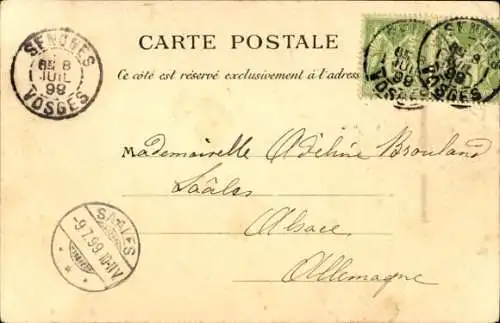 SENONES
8 JUIL 99
VOSGES
CARTE POSTALE
Ce côté est réservé exclusivement à l'adress
8 JUIL 99
VOSGES
99
VOSGES
Mademoiselle Adéline Brouland
Saâles
Alsace
Allemagne
SAALES
-9.7.99.10-11V